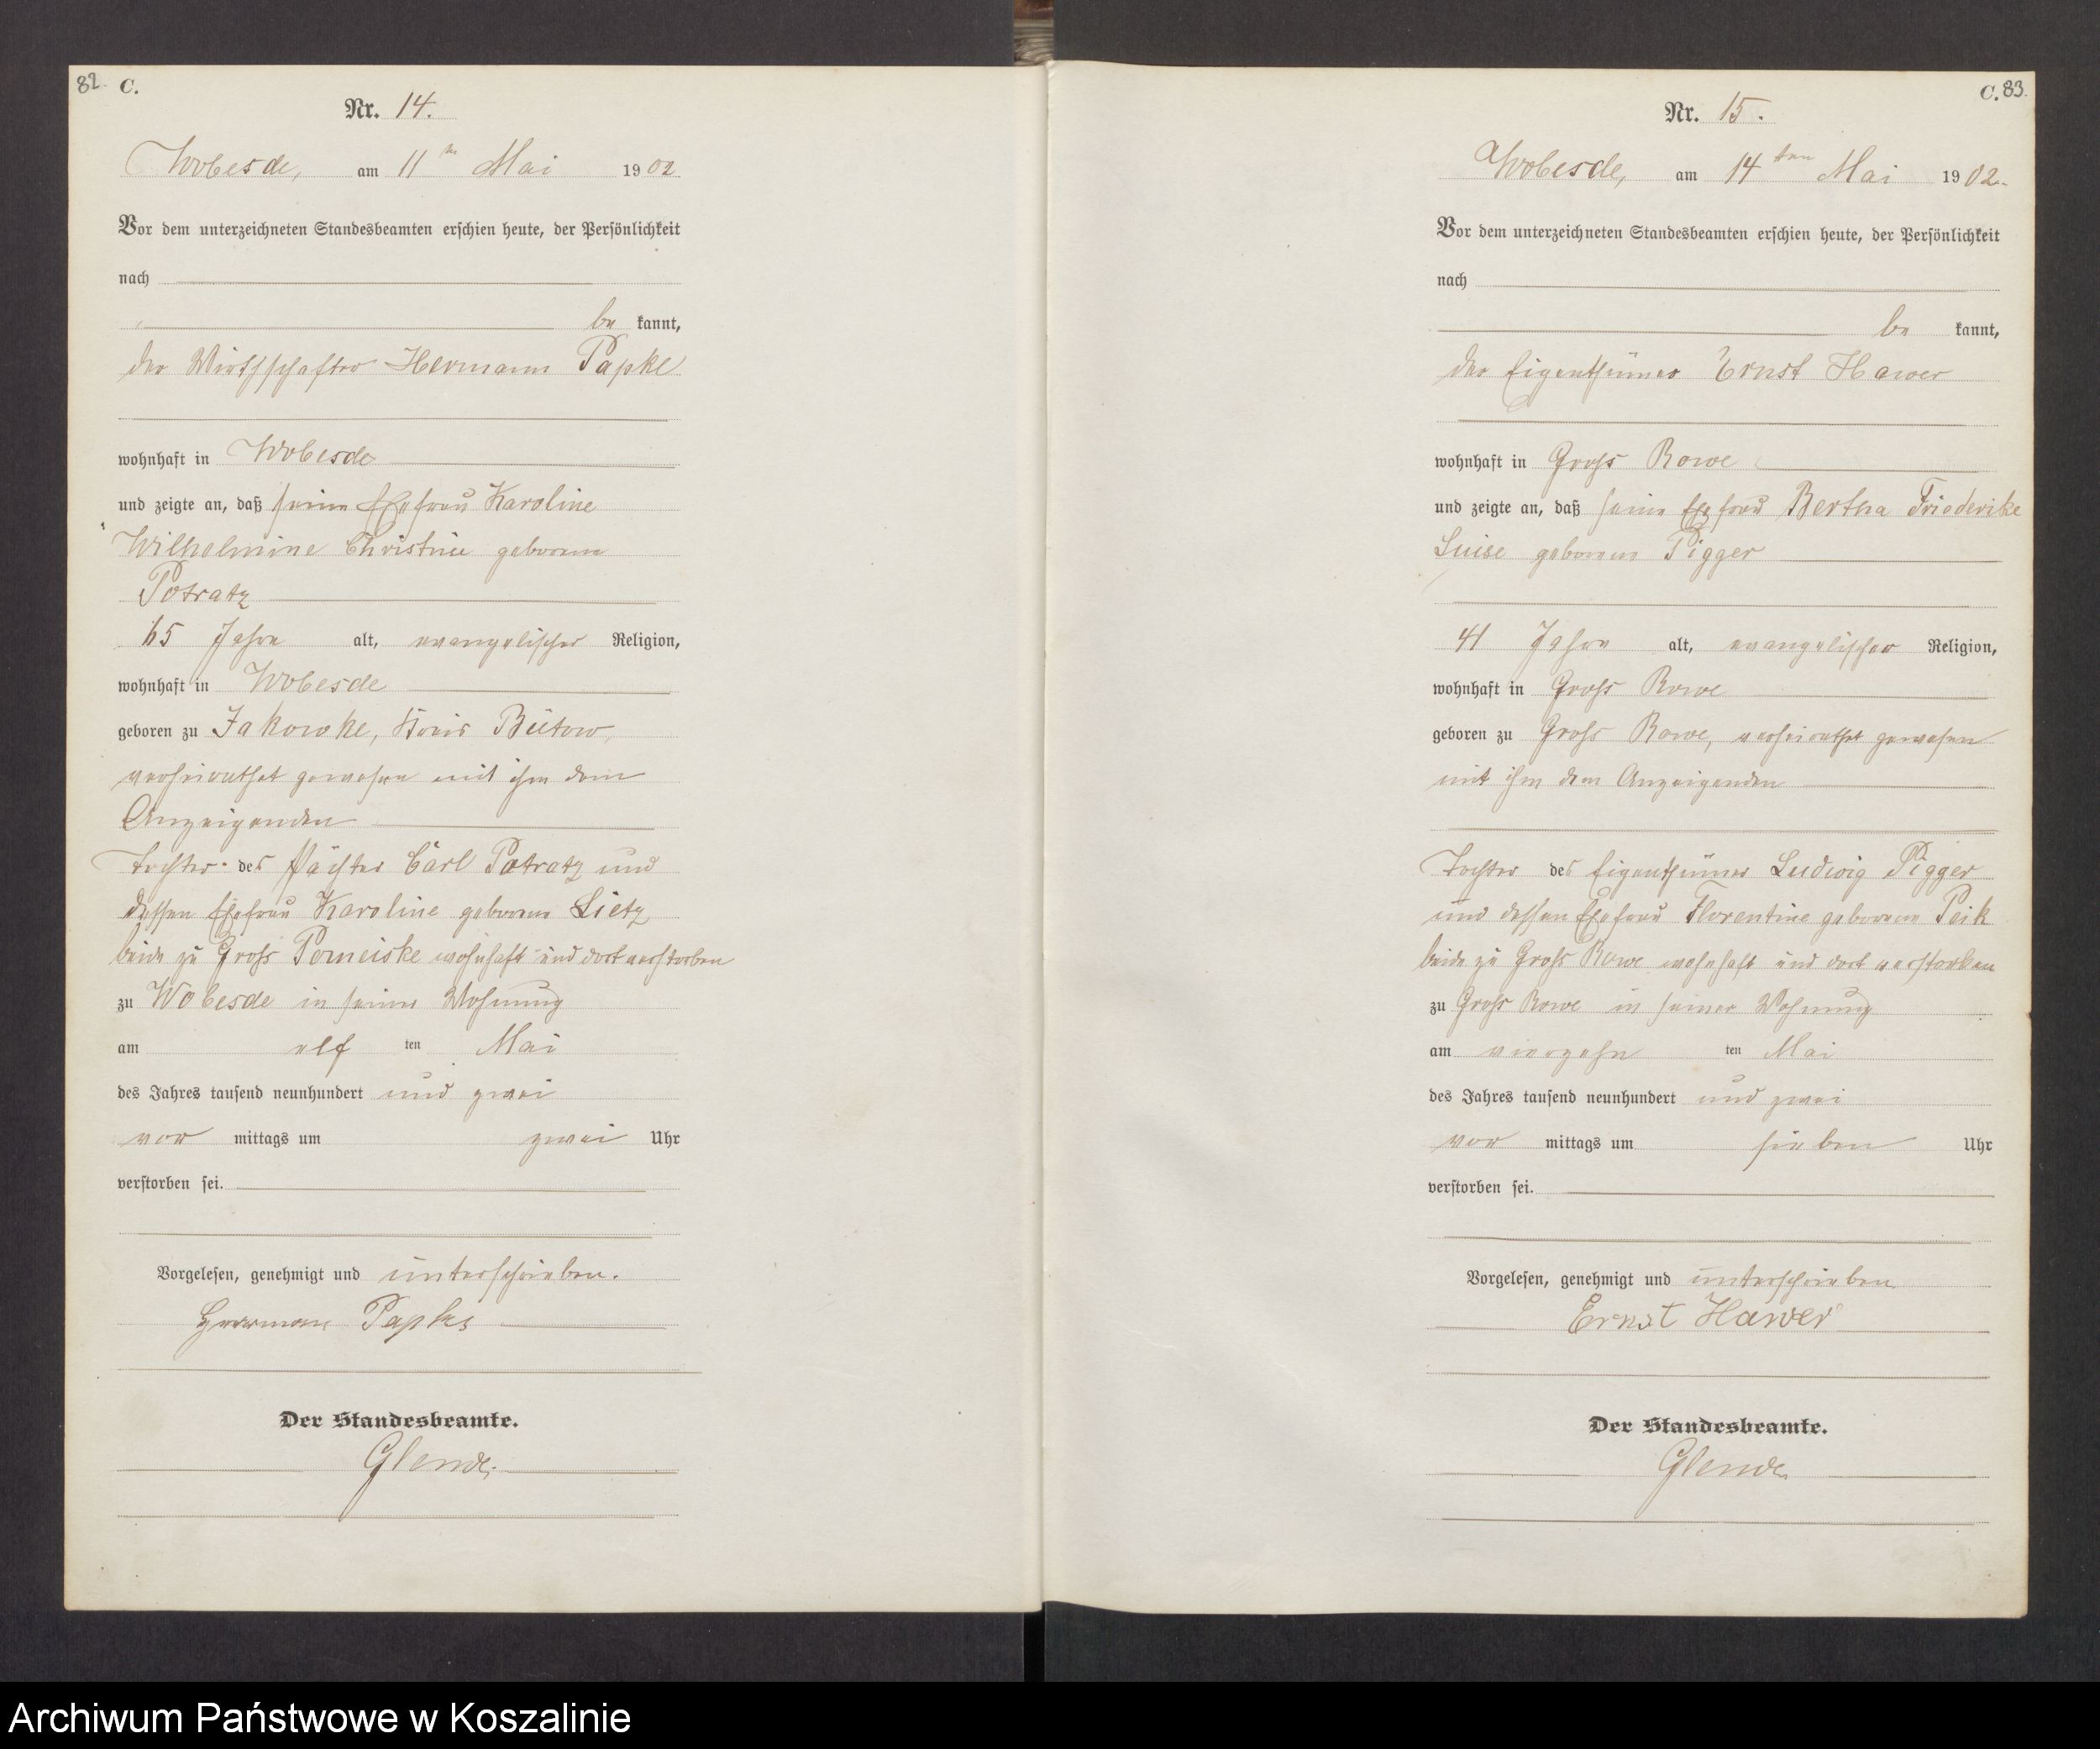 82.
C.
Nr. 14.
Wobesde, am 11ten Mai 1902
Vor dem unterzeichneten Standesbeamten erschien heute, der Persönlichkeit
nach
be kannt,
der Wirthschafter Hermann Papke
wohnhaft in Wobesde
und zeigte an, daß seine Ehefrau Karoline
Wilhelmine Christine geborene
Potratz
65 Jahre alt, evangelischer Religion,
wohnhaft in Wobesde
geboren zu Jakowke, Kreis Bütow,
verheirathet gewesen mit ihm dem
Anzeigenden
Tochter des Pächter Carl Potratz und
dessen Ehefrau Karoline geborene Lietz
beide zu Gross Pomeiske wohnhaft und dort verstorben
zu Wobesde in seiner Wohnung
am elf ten Mai
des Jahres tausend neunhundert und zwei
vor mittags um zwei Uhr
verstorben sei.
Vorgelesen, genehmigt und unterschrieben.
Herrman Papke
Der Standesbeamte.
Glende
C. 83.
Nr. 15.
Wobesde, am 14ten Mai 1902.
Vor dem unterzeichneten Standesbeamten erschien heute, der Persönlichkeit
nach
be kannt,
der Eigenthümer Ernst Hawer
wohnhaft in Gross Rowe
und zeigte an, daß seine Ehefrau Bertha Friederike
Luise geborene Pigger
41 Jahre alt, evangelischer Religion,
wohnhaft in Gross Rowe
geboren zu Gross Rowe, verheirathet gewesen
mit ihm dem Anzeigenden
Tochter des Eigenthümer Ludwig Pigger
und dessen Ehefrau Florentine geborene Peik
beide zu Gross Rowe wohnhaft und dort verstorben
zu Gross Rowe in seiner Wohnung
am vierzehn ten Mai
des Jahres tausend neunhundert und zwei
vor mittags um sieben Uhr
verstorben sei.
Vorgelesen, genehmigt und unterschrieben
Ernst Hawer
Der Standesbeamte.
Glende
Archiwum Państwowe w Koszalinie